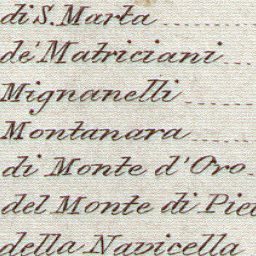 di S. Marta
de' Matriciani
Mignanelli
Montanara
di Monte d'Oro
del Monte di Pie
della Navicella